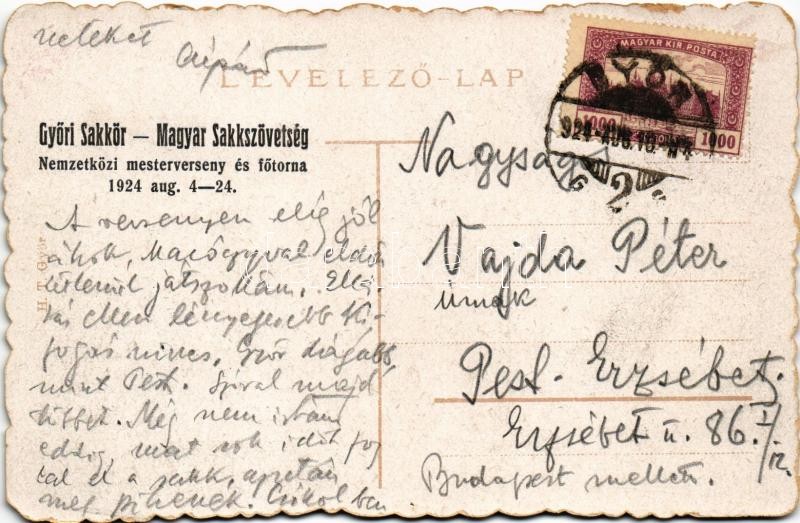 neteket
Árpád
LEVELEZŐ-LAP
MAGYAR KIR. POSTA
1000 1000
GYŐR
924 AUG. 10.
2
Győri Sakkör — Magyar Sakkszövetség
Nemzetközi mesterverseny és főtorna
1924 aug. 4—24.
A versenyen elég jól
állok, eldön
tetlenül játszottam. Ellá-
tás ellen lényegesebb ki-
fogás nincs, Győr drágább,
mint Pest. Szóval majd
többet. Még nem írtam
eddig, mert sok időt fog
lal el a sakk, azután
meg pihenek. Csókol ben
H. T. Győr
Nagyságos
Vajda Péter
úrnak
Pest-Erzsébet.
Erzsébet u. 86. I/12.
Budapest mellett.